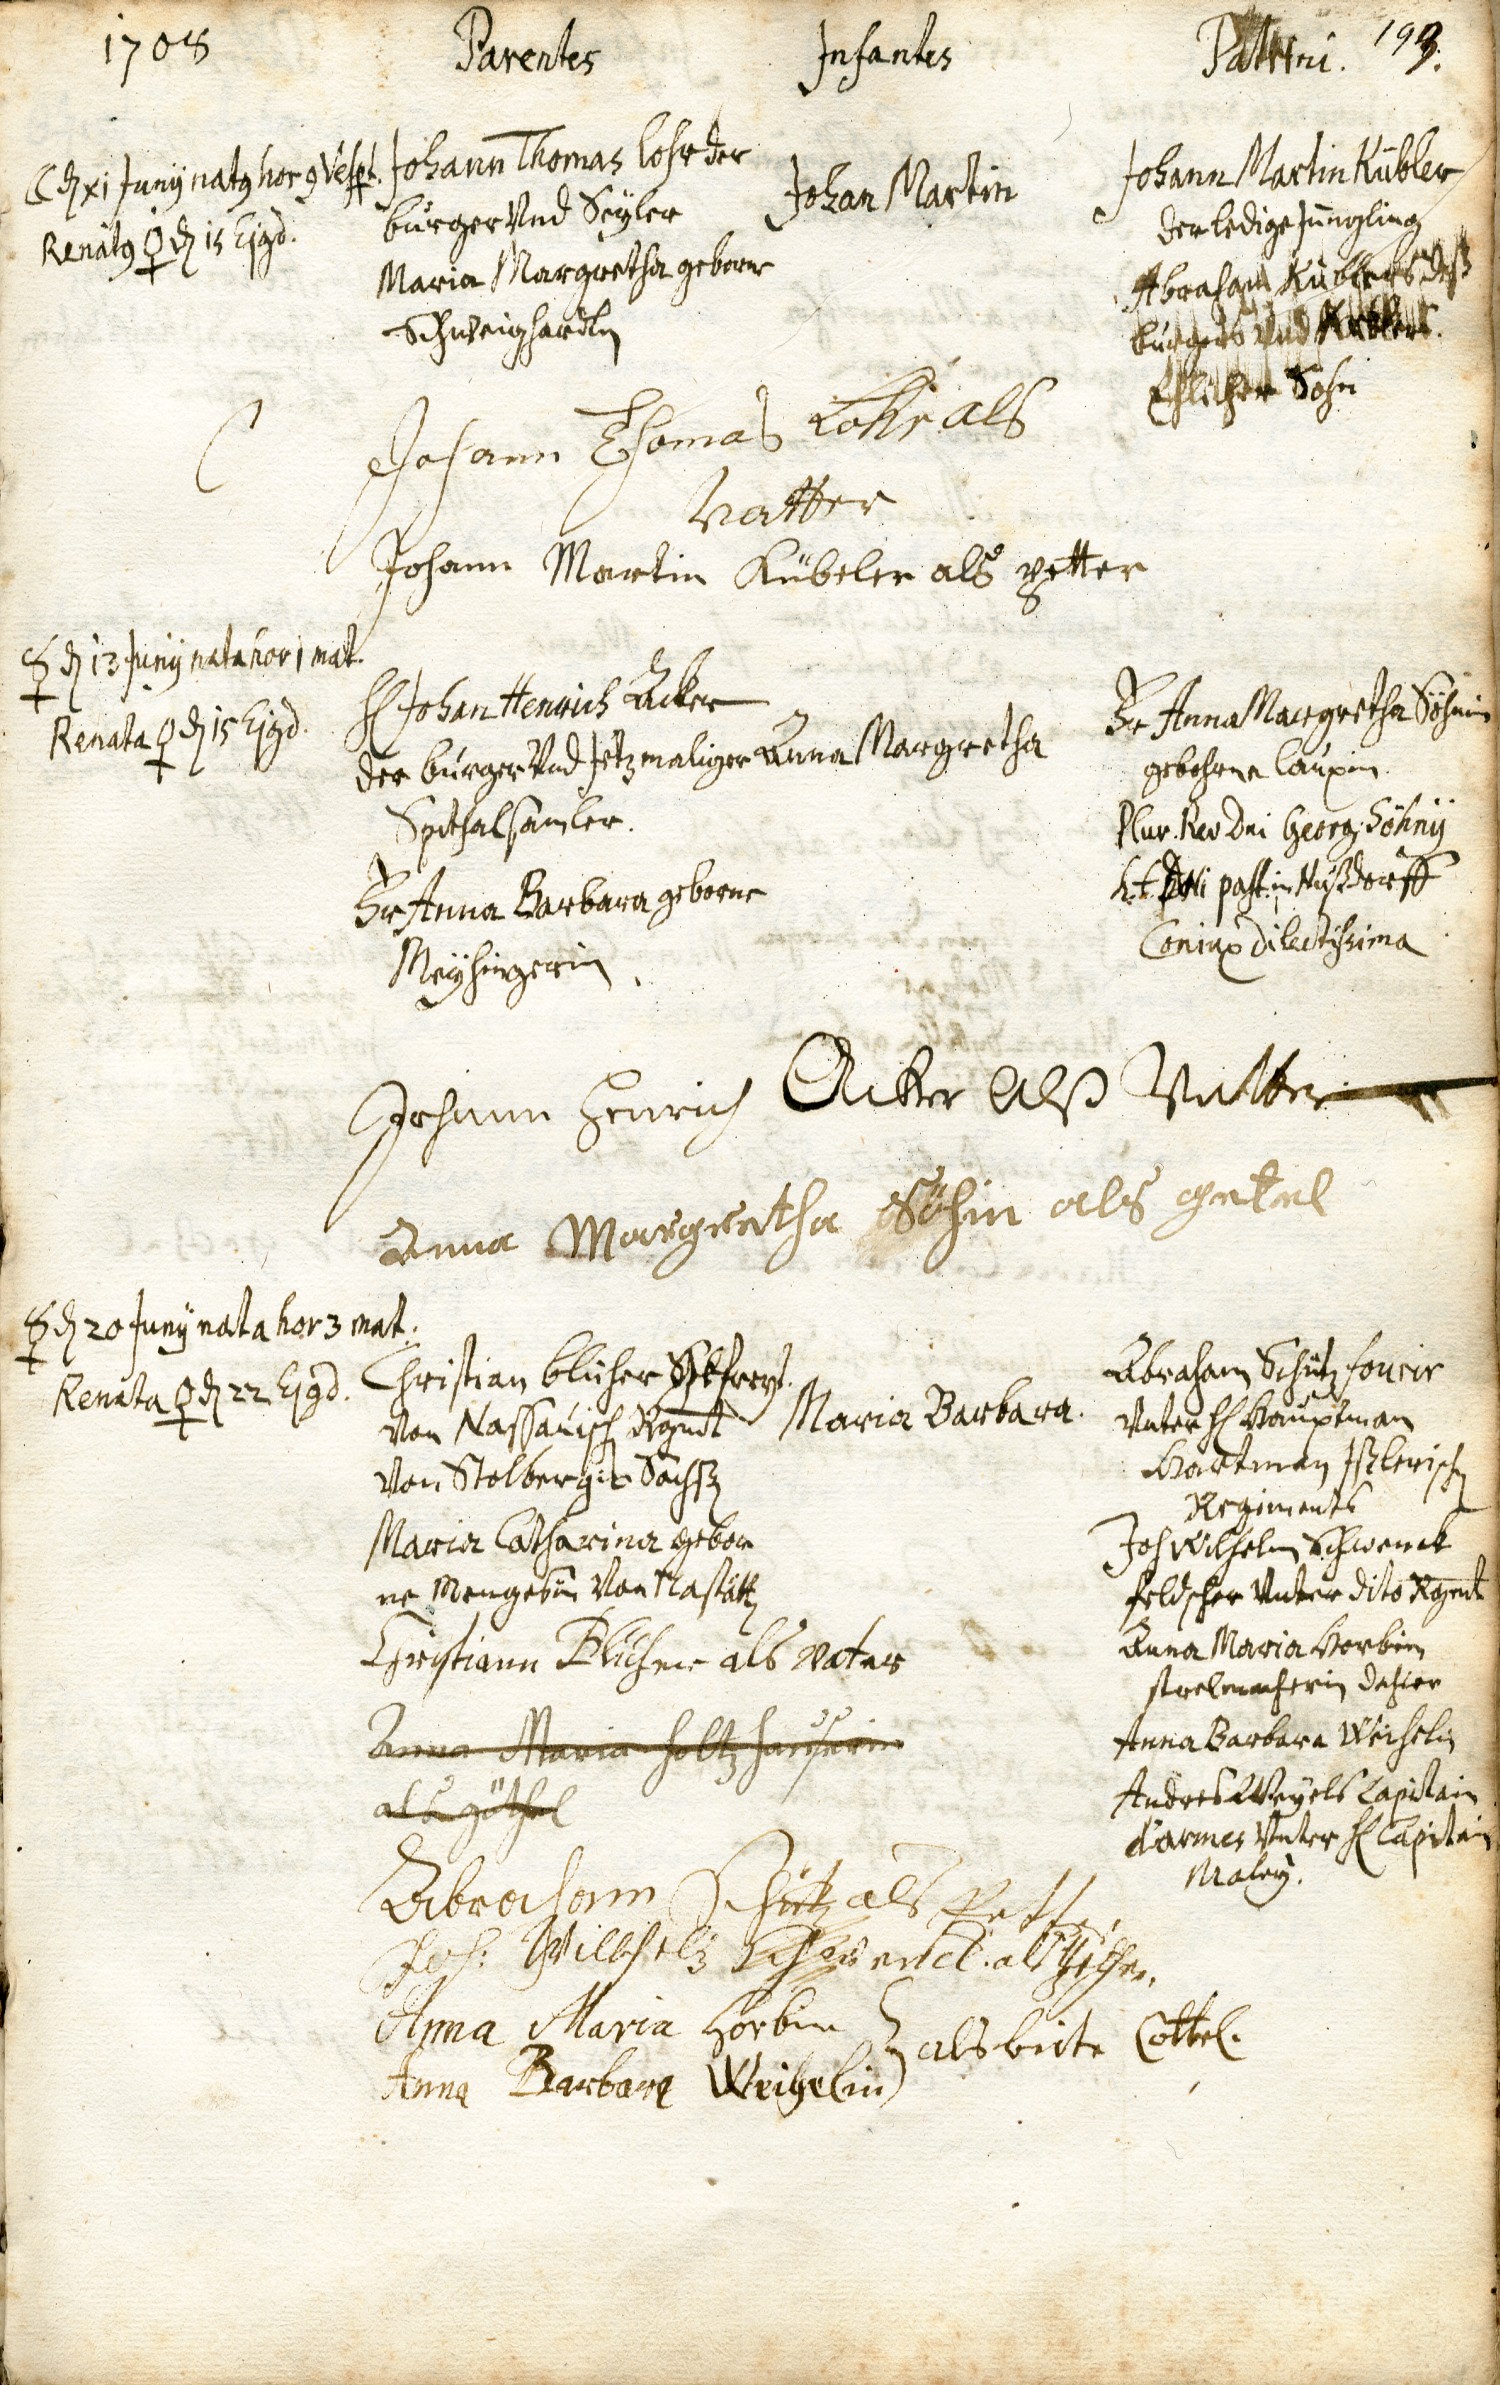 1708 Parentes Infantes Patrini. 193.
☾ d. xi Junij natg hor 9 Vespt.
Renatg ♀ d. 15 Ejgd.
Johann Thomas Lohr der
burger Vnd Seyler
Maria Margretha geborne
Schweighardtin
Johan Martin
Johann Martin Kübler
der ledige Jüngling
Abraham Küblers deß
burgers Vnd
Ehlicher Sohn
Johann Thomas Lohr als
Vatter
Johann Martin Kübeler als petter
☿ d. 13 Junij nata hor 1 mat.
Renata ♀ d. 15 Ejgd.
H Johan Henrich Acker
der burger Vnd Jetzmaliger
Spithalsamler.
Fr Anna Barbara geborne
Meysingerin
Anna Margretha
Fr Anna Margretha Söhnin
gebohrne Lauxin.
Plur. Rev Dni Georg: Söhnij
h.t. past: in Nußdorff
Coniux dilectissima
Johann Henrich Acker Alß Vatter
Anna Margretha Söhin als getel
☿ d. 20 Junij nata hor 3 mat.
Renata ♀ d. 22 Ejgd.
Christian Blicher Gefreyt.
Von Nassauisch Rgmdt
Von Stolberg in Sachß
Maria Catharina gebor
ne Mengesin Von Nastätt
Maria Barbara.
Abraham Schütz fourir
Vnter H Hauptman
Hartman Jßlerisch
Regiments
Joh Wilhelm Schwenck
feldscher Vnter dito Rgmdt
Anna Maria Horbin
strelmacherin dahier
Anna Barbara Weihelin
Andres Weyels Capitain
d'armes Vnter H Capitain
Maley.
Christiann Blicher als vater
Anna Maria Holtzhauserin
als göthel
Abraham Schütz als Pett
Joh: Willhelm Schwenck. als
Anna Maria Horbin
Anna Barbara Weihelin } als beite Cottel.